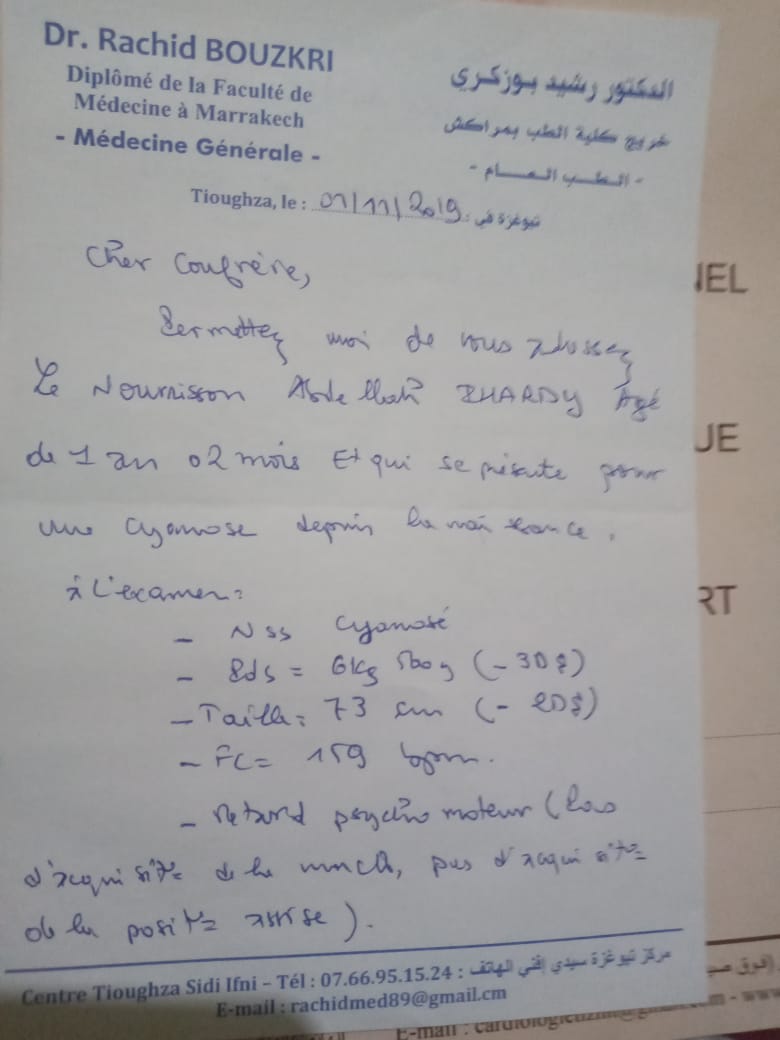 Dr. Rachid BOUZKRI
Diplômé de la Faculté de
Médecine à Marrakech
- Médecine Générale -
الدكتور رشيد بوزكري
خريج كلية الطب بمراكش
- الطب العام -
Tioughza, le : 01/11/2019 تيوغزة في:
Cher Confrère,
Permettez moi de vous adresser
Le Nourrisson Abdellah Agé
de 1 an 02 mois Et qui se présente pour
une cyanose depuis la naissance.
à L'examen:
- Nss cyanosé
- Pds = 6kg 500g (- 3DS)
- Taille = 73 cm (- 2DS)
- FC = 159 bpm.
- Retard psychomoteur (Pas
d'acquisit° de la marche, pas d'acquisit°
de la posit° assise).
مركز تيوغزة سيدي إفني الهاتف : Centre Tioughza Sidi Ifni – Tél : 07.66.95.15.24
E-mail : rachidmed89@gmail.cm
NEL
UE
RT